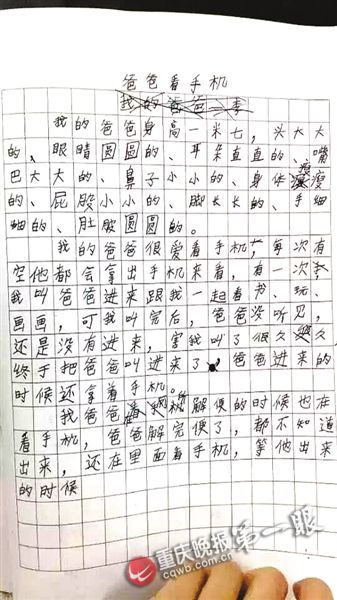 爸爸看手机
我的爸爸一事
我的爸爸身高一米七，头大大
的、眼睛圆圆的、耳朵直直的、嘴
巴大大的、鼻子小小的、身体瘦瘦
的、屁股小小的、脚长长的、手细
细的、肚股圆圆的。
我的爸爸很爱看手机，每次有
空他都会拿出手机来看，有一次，
我叫爸爸进来跟我一起看书、玩、
画画，可我叫完后，爸爸没听见，
还是没有进来，害我叫了很久，
终于把爸爸叫进来了，爸爸进来的
时候还拿着手机。
我爸爸在解便的时候也在
看手机，爸爸解完便了，都不知道
出来，还在里面看手机，等他出来
的时候
重庆晚报第一眼
www.cqwb.com.cn